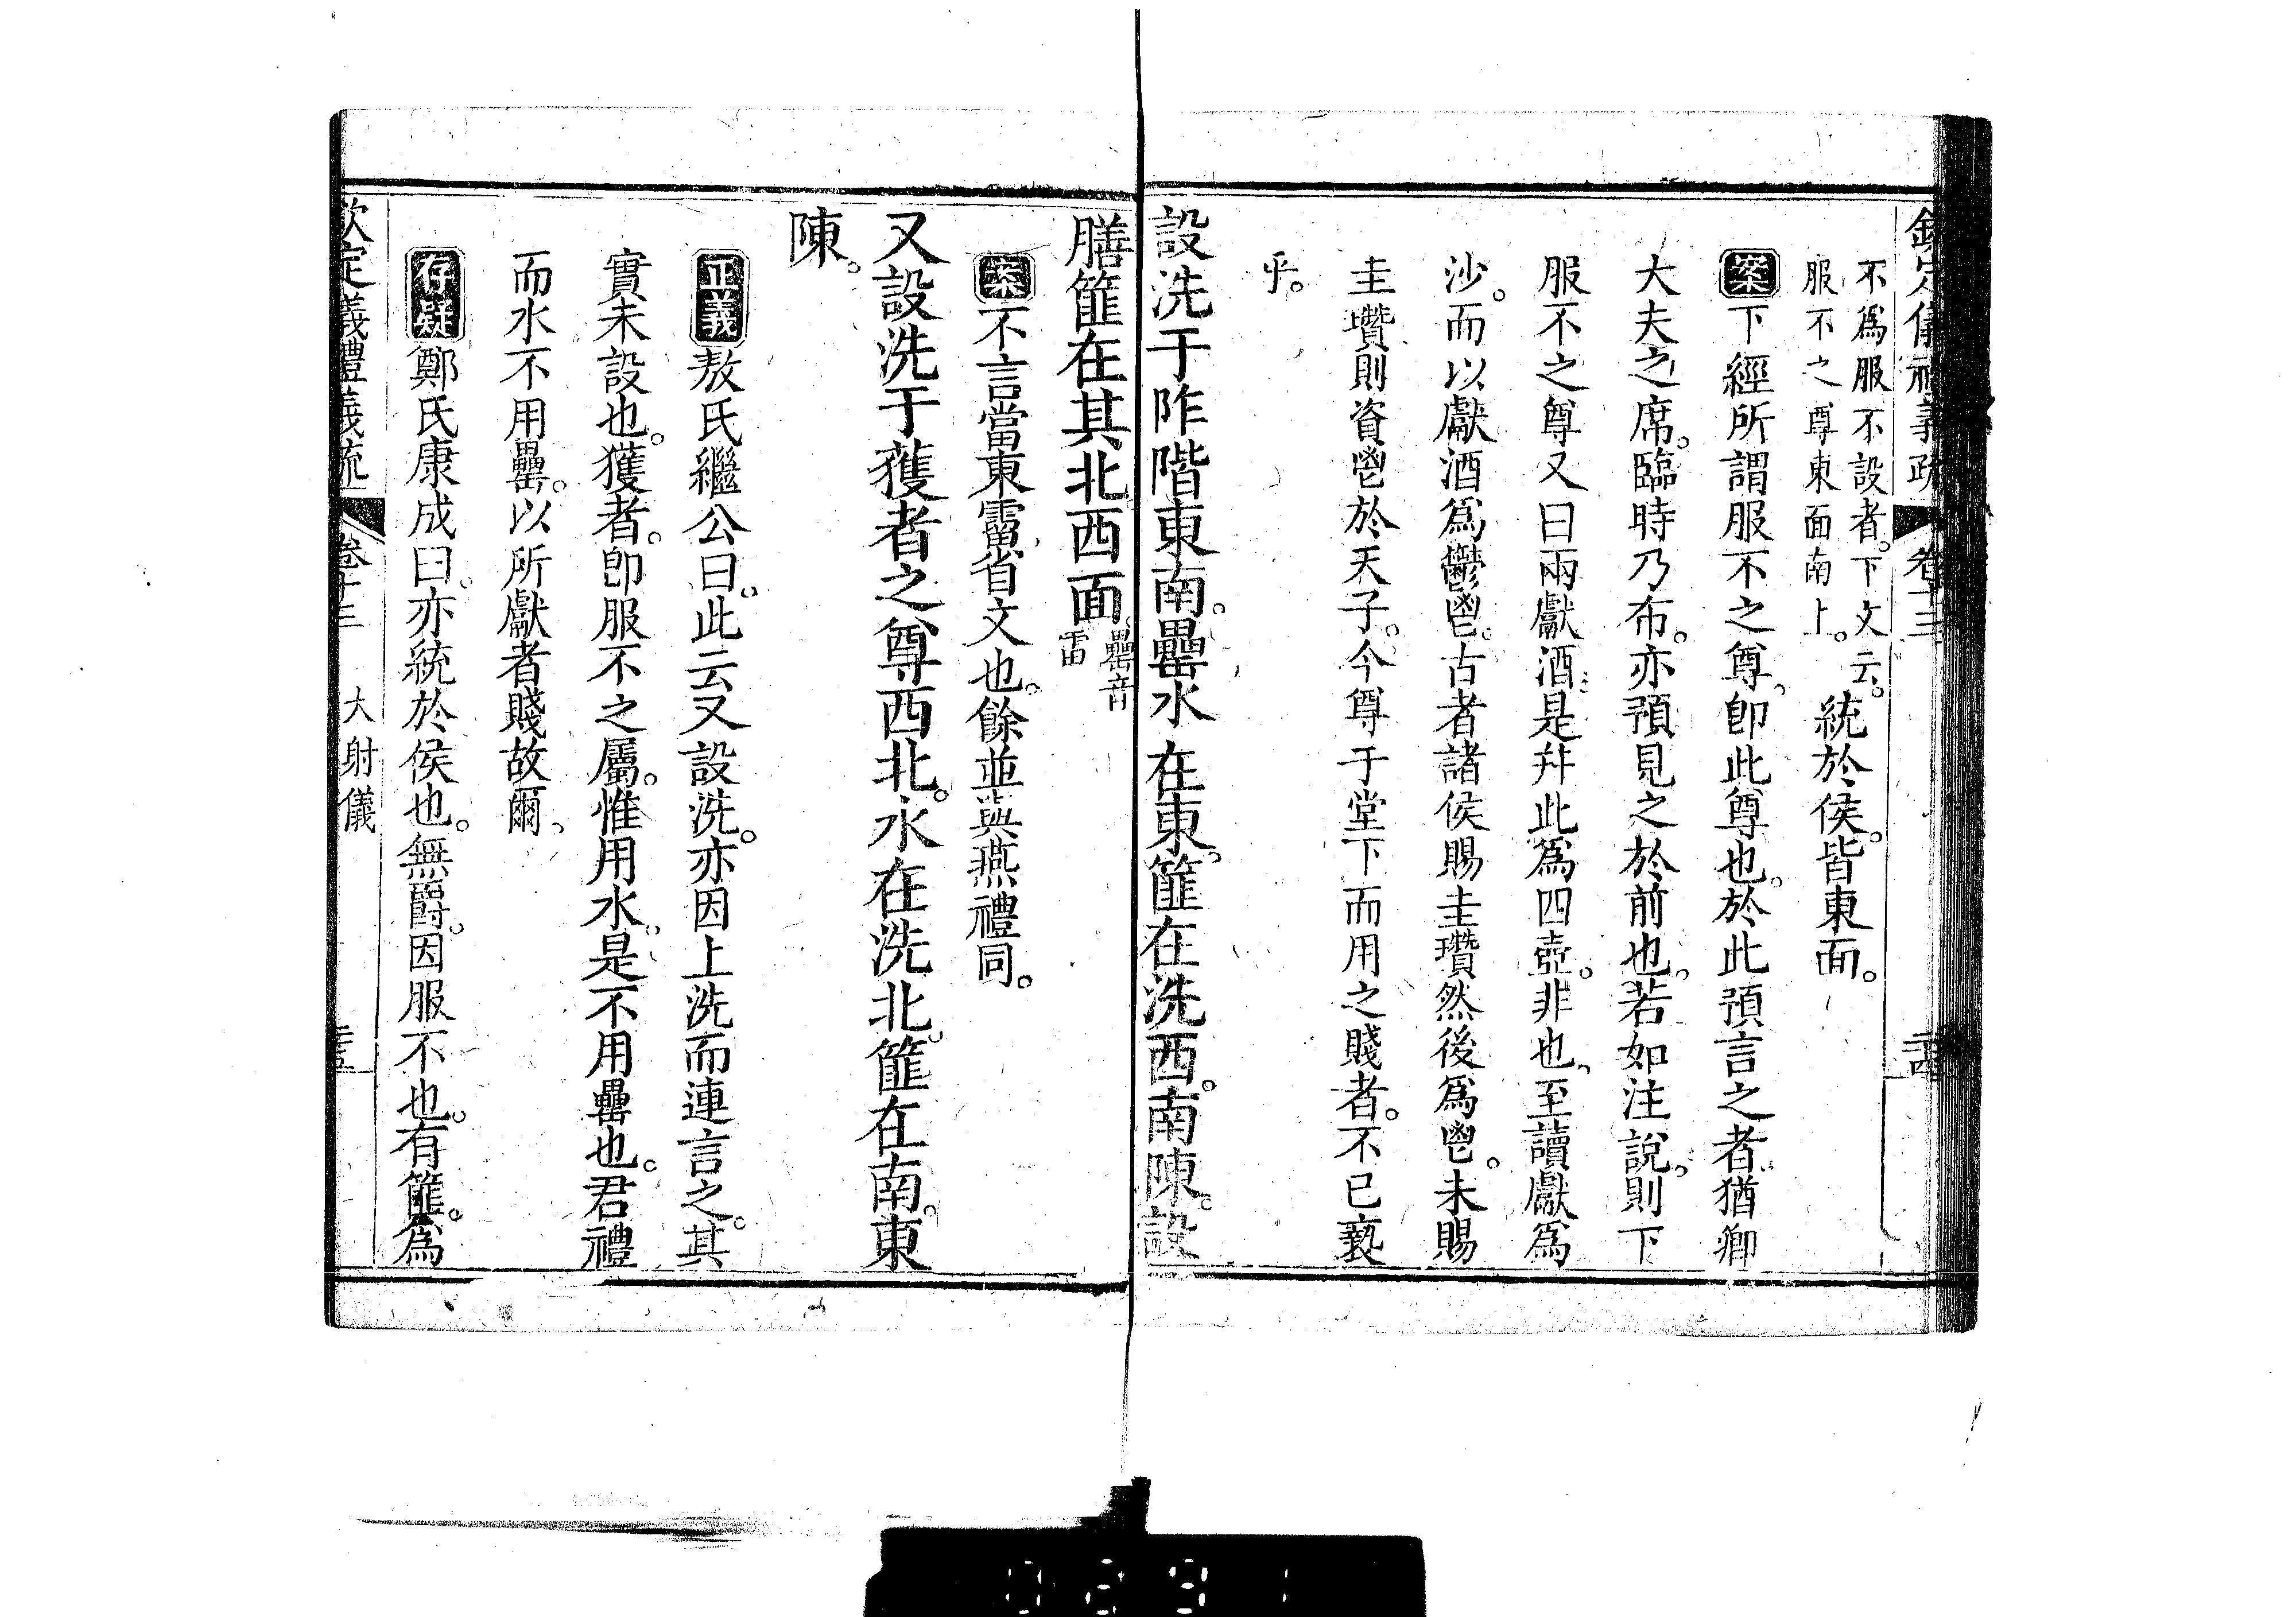 欽定儀禮義疏 卷十三 二十四
不爲服不設者。下文云。
服不之尊東面南上。
統於侯。皆東面。
案下經所謂服不之尊。卽此尊也。於此預言之者。猶卿
大夫之席。臨時乃布。亦預見之於前也。若如注說。則下
服不之尊又曰兩獻酒。是幷此爲四壺。非也。至讀獻爲
沙。而以獻酒爲鬱鬯。古者諸侯賜圭瓚然後爲鬯。未賜
圭瓚則資鬯於天子。今尊于堂下而用之賤者。不已褻
乎。
設洗于阼階東南。罍水在東。篚在洗西。南陳。設
膳篚在其北西面。
罍音
雷
案不言當東霤。省文也。餘並與燕禮同。
又設洗于獲者之尊西北。水在洗北。篚在南。東
陳。
正義敖氏繼公曰。此云又設洗。亦因上洗而連言之。其
實未設也。獲者。卽服不之屬。惟用水。是不用罍也。君禮
而水不用罍。以所獻者賤故爾。
存疑鄭氏康成曰。亦統於侯也。無爵。因服不也。有篚。爲
欽定義禮義疏 卷十三 大射儀